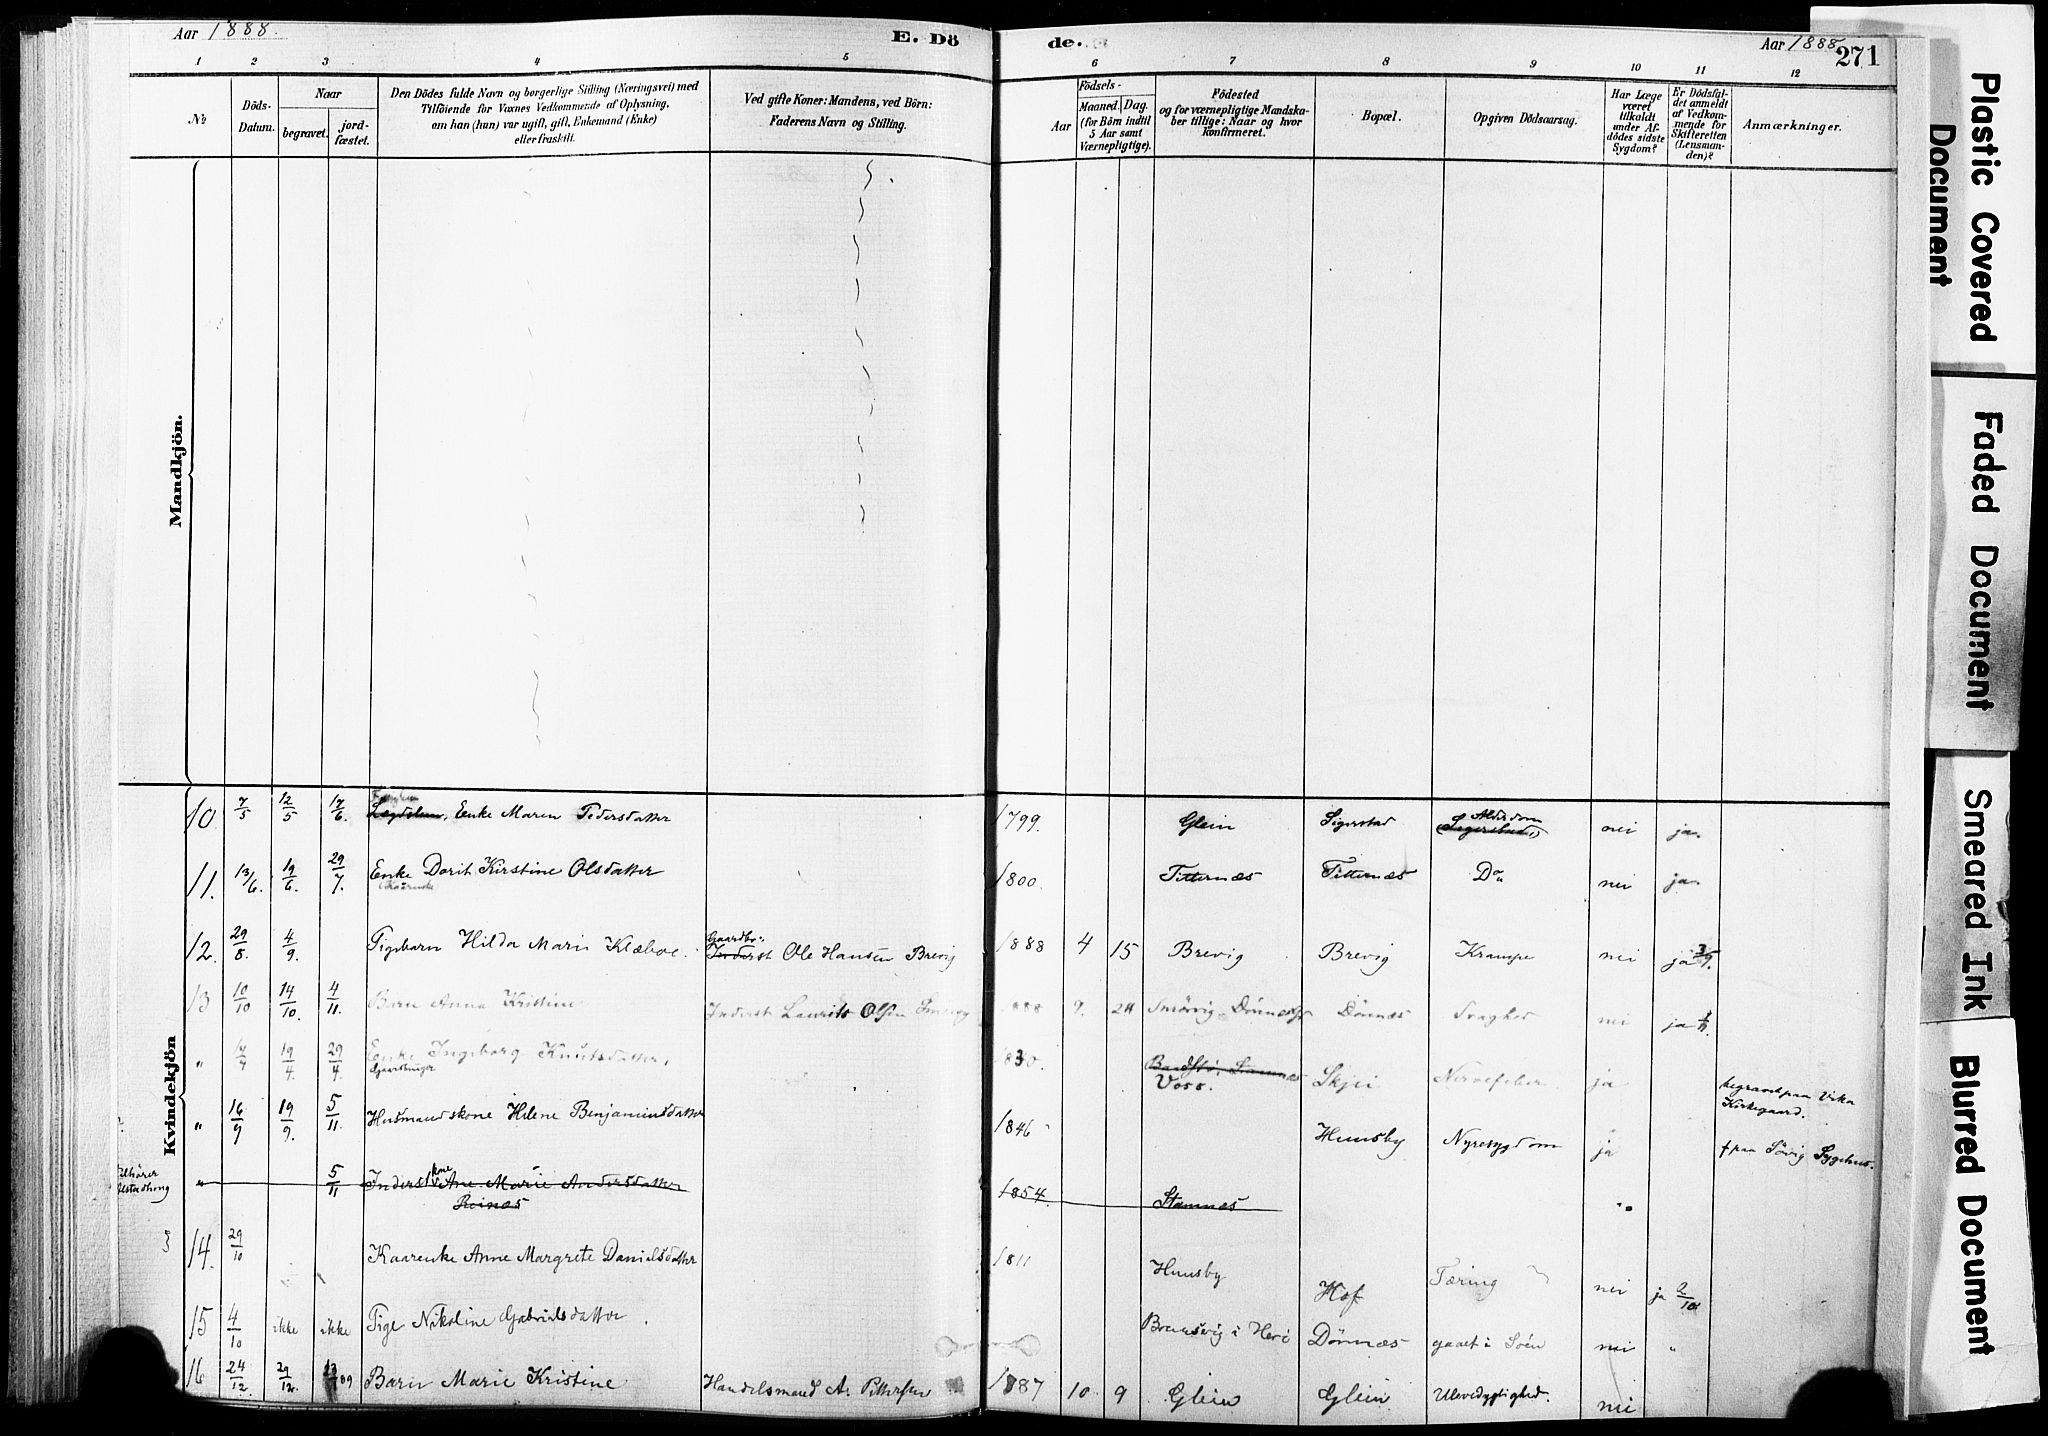 Aar 1888.
E. Dö
de.
Aar 1888
271
1 2 3 4 5 6 7 8 9 10 11 12
№
Döds-Datum.
Naar
begravet.
jord-fæstet.
Den Dödes fulde Navn og borgerlige Stilling (Næringsvei) med
Tilföiende for Voxnes Vedkommende af Oplysning,
om han (hun) var ugift, gift, Enkemand (Enke)
eller fraskilt.
Ved gifte Koner: Mandens, ved Börn:
Faderens Navn og Stilling.
Födsels-
Aar
Maaned.
Dag.
(for Börn indtil
5 Aar samt
Værnepligtige).
Födested
og for værnepligtige Mandska-
ber tillige: Naar og hvor
konfirmeret.
Bopæl.
Opgiven Dödsaarsag.
Har Læge
været
tilkaldt
under Af-
dödes sidste
Sygdom?
Er Dödsfal-
det anmeldt
af Vedkom-
mende for
Skifteretten
(Lensman-
den)?
Anmærkninger.
Mandkjön.
Kvindekjön
10 7/5 12/5 17/6. Lægdslem, Enke Maren Pedersdatter 1799. Glein Sigerstad Alderdom nei ja.
11. 13/6. 19/6. 29/7. Enke Dorit Kirstine Olsdatter 1800. Titternæs Titternæs Do nei ja.
Kaarenke
12. 29/8. 4/9. Pigebarn Hilda Marie Klæboe. Gaardbr: Inderst Ole Hansen Brevig 1888 4 15 Brevig Brevig Krampe nei ja 3/9.
13 10/10 14/10. 4/11. Barn Anna Kristine Inderst Laurits Olsen 888 9. 24 Dønnæs Svaghed nei ja
" 19/4. 29/4. Enke Ingeborg Knutsdatter, 1830. Skjei Nervefeber ja
Voss.
begravet paa
Kirkegaard.
" 16/9 19/9. 5/11. Husmandskone Helene Benjaminsdatter 1846 Huusby Nyresygdom ja † paa Søvig Sygehus.
" 5/11 Inderstkone Ane Marie Andersdatter 1854. Stamnæs "
Reinæs
14. 29/10 Kaarenke Anne Margrete Danielsdatter 1811 Huusby Hof Tæring nei ja 2/10
15 4/10 ikke ikke Pige Nikoline Gabrielsdatter. i Herø Dønnæs gaaet i Søen nei "
16 24/12. 29/12. 89 Barn Marie Kristine Handelsmand A. Pettersen 1887 10 9 Glein Glein Ulevedygtighed. nei
Plastic Covered
Document
Faded Document
Smeared Ink
Blurred Document